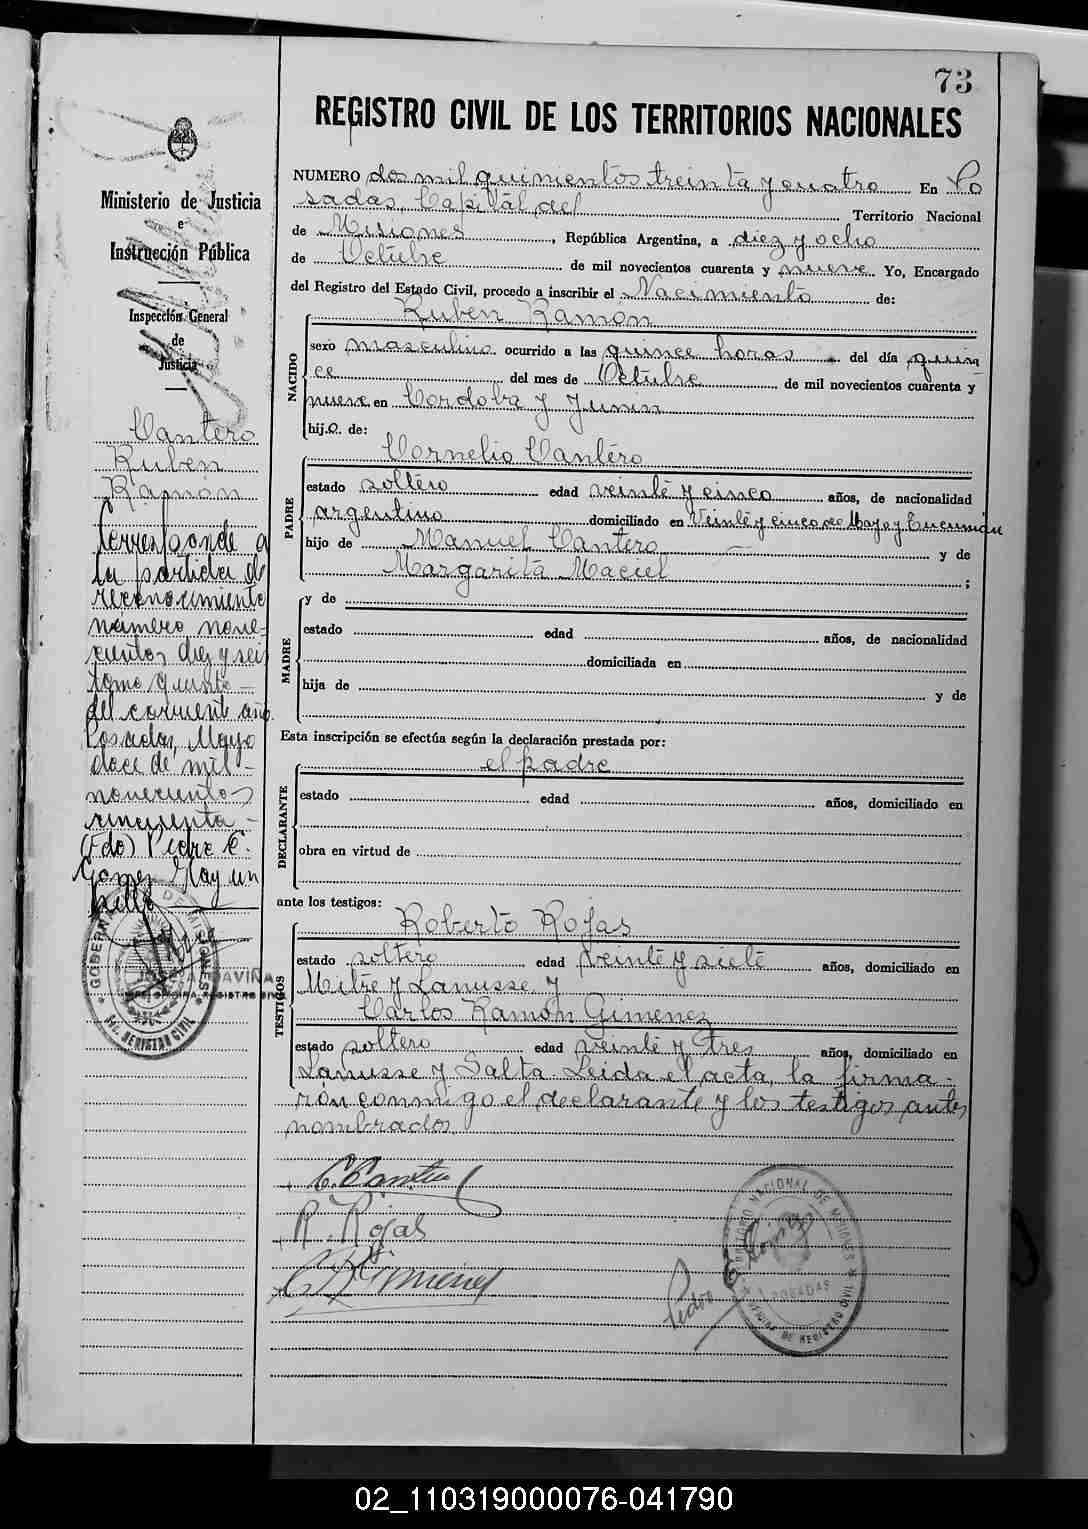 73
REGISTRO CIVIL DE LOS TERRITORIOS NACIONALES
Ministerio de Justicia
e
Instrucción Pública
Inspección General
de
Justicia
Cantero
Ruben
Ramón
Corresponde a
la partida de
reconocimiento
número nove-
cientos diez y seis
tomo quinto
del corriente año.
Posadas, Mayo
doce de mil
novecientos
cincuenta
(Fdo) Pedro C.
Gomez Hay un
sello
GOBERN DE MISIONES
DAVIÑA
REGISTRO CIVIL
NUMERO dos mil quinientos treinta y cuatro En Po
sadas, Capital del Territorio Nacional
de Misiones, República Argentina, a diez y ocho
de Octubre de mil novecientos cuarenta y nueve Yo, Encargado
del Registro del Estado Civil, procedo a inscribir el Nacimiento de:
NACIDO
Ruben Ramón
sexo masculino ocurrido a las quince horas del día quin
ce del mes de Octubre de mil novecientos cuarenta y
nueve en Cordoba y Junin
hijo. de:
PADRE
Cornelio Cantero
estado soltero edad veinte y cinco años, de nacionalidad
argentino domiciliado en Veinte y cinco de Mayo y Tucumán
hijo de Manuel Cantero y de
Margarita Maciel ;
MADRE
y de
estado edad años, de nacionalidad
domiciliada en
hija de y de
Esta inscripción se efectúa según la declaración prestada por:
DECLARANTE
el padre
estado edad años, domiciliado en
obra en virtud de
ante los testigos:
TESTIGOS
Roberto Rojas
estado soltero edad veinte y siete años, domiciliado en
Mitre y Lanusse y
Carlos Ramón Gimenez
estado soltero edad veinte y tres años, domiciliado en
Lanusse y Salta. Leida el acta, la firma-
rón conmigo el declarante y los testigos antes
nombrados
C. Cantero
R. Rojas
C R Gimenez
Pedro C Gomez
TERRITORIO NACIONAL DE MISIONES
POSADAS
OFICINA DE REGISTRO CIVIL
02_110319000076-041790